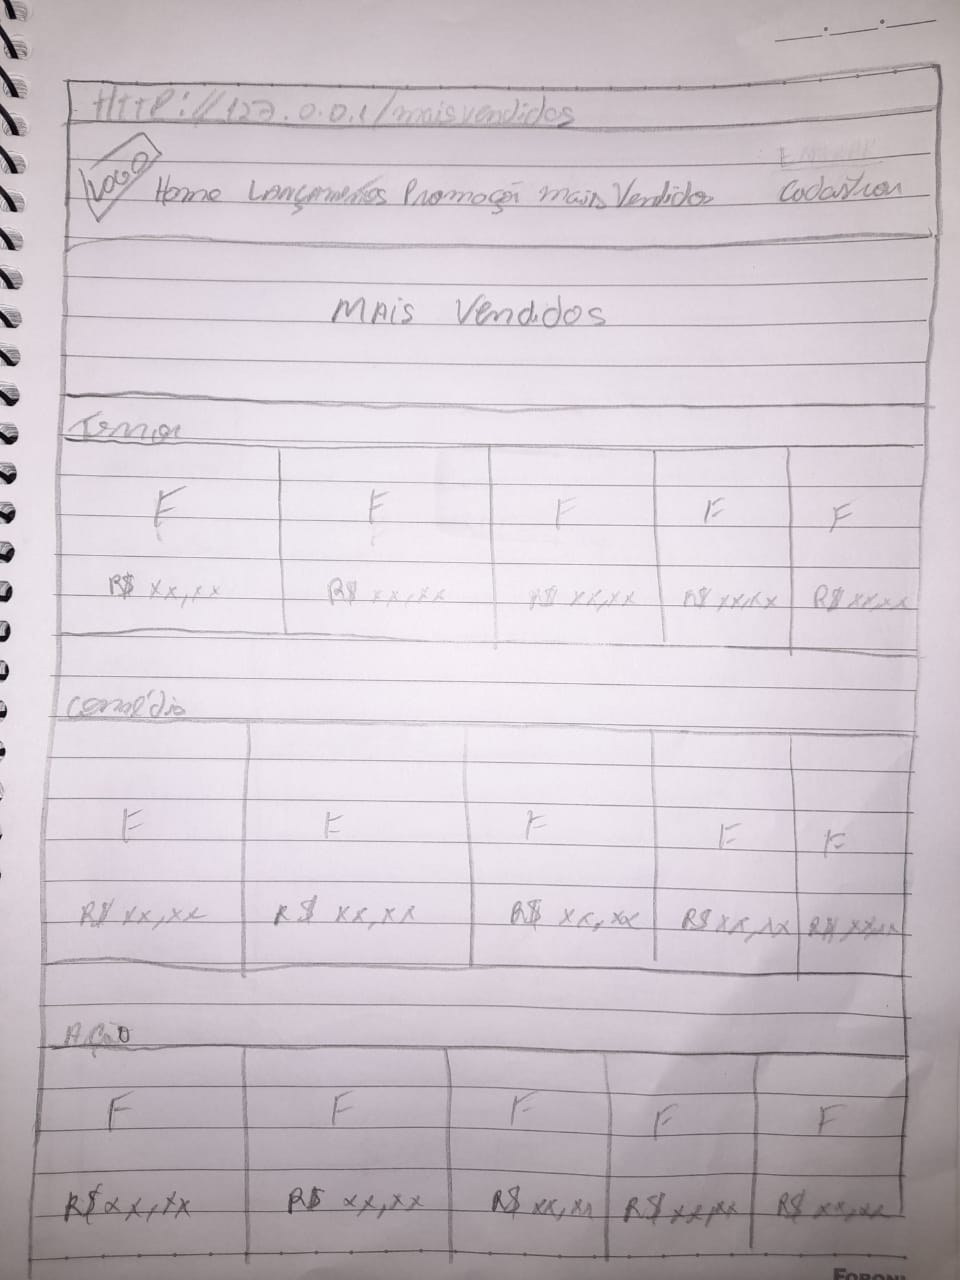 HTTP://127.0.0.1/maisvendidos
ENTRAR
LOGO Home Lançamentos Promoção mais Vendidos Cadastrar
MAIS VENDIDOS
Terror
F F F F F
R$ xx,xx R$ xx,xx R$ xx,xx R$ xx,xx R$ xx,xx
comédia
F F F F F
R$ xx,xx R$ xx,xx R$ xx,xx R$ xx,xx R$ xx,xx
Ação
F F F F F
R$ xx,xx R$ xx,xx R$ xx,xx R$ xx,xx R$ xx,xx
FORONI